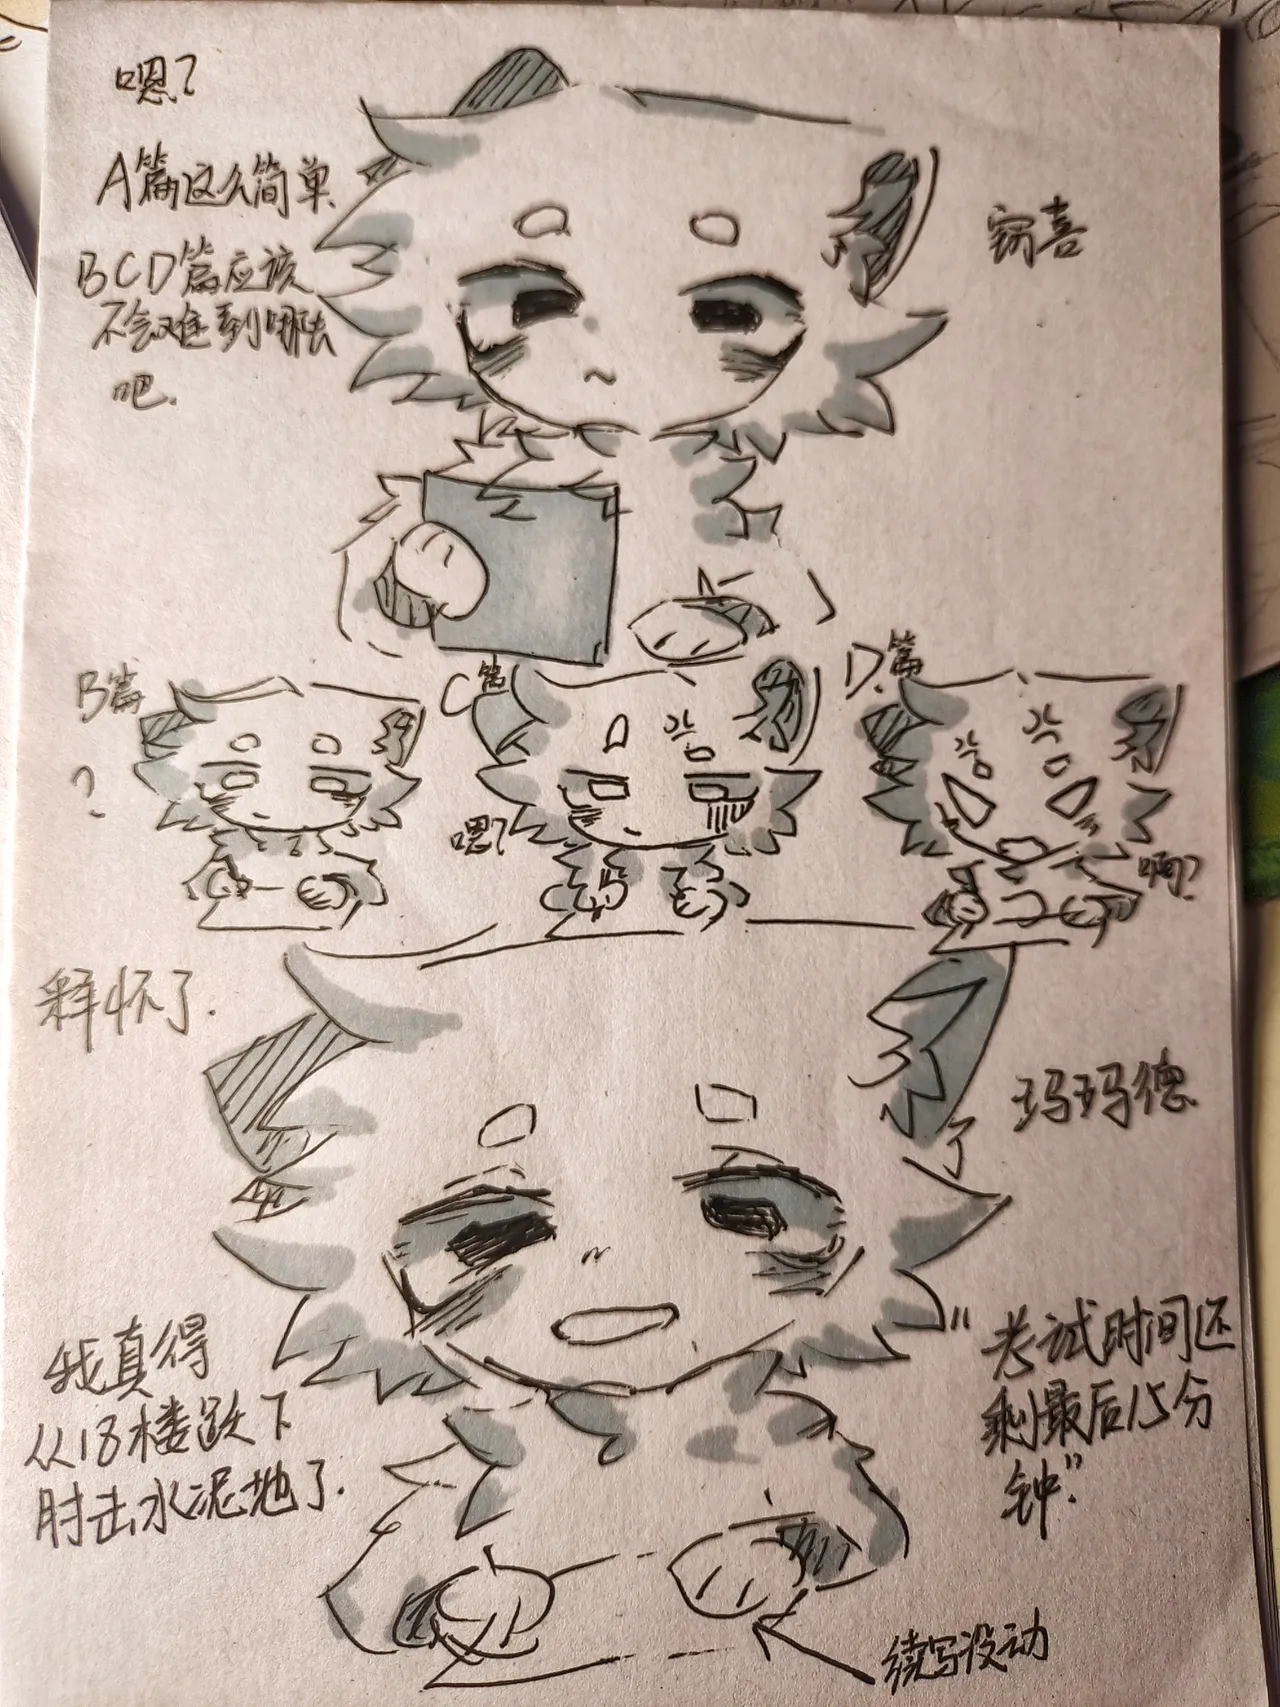 嗯？
A篇这么简单
BCD篇应该
不会难到哪去
吧.
窃喜
B篇
?
C篇
嗯？
D.篇
啊？
释怀了.
玛玛德
我真得
从18楼跃下
肘击水泥地了.
"考试时间还
剩最后15分
钟."
续写没动